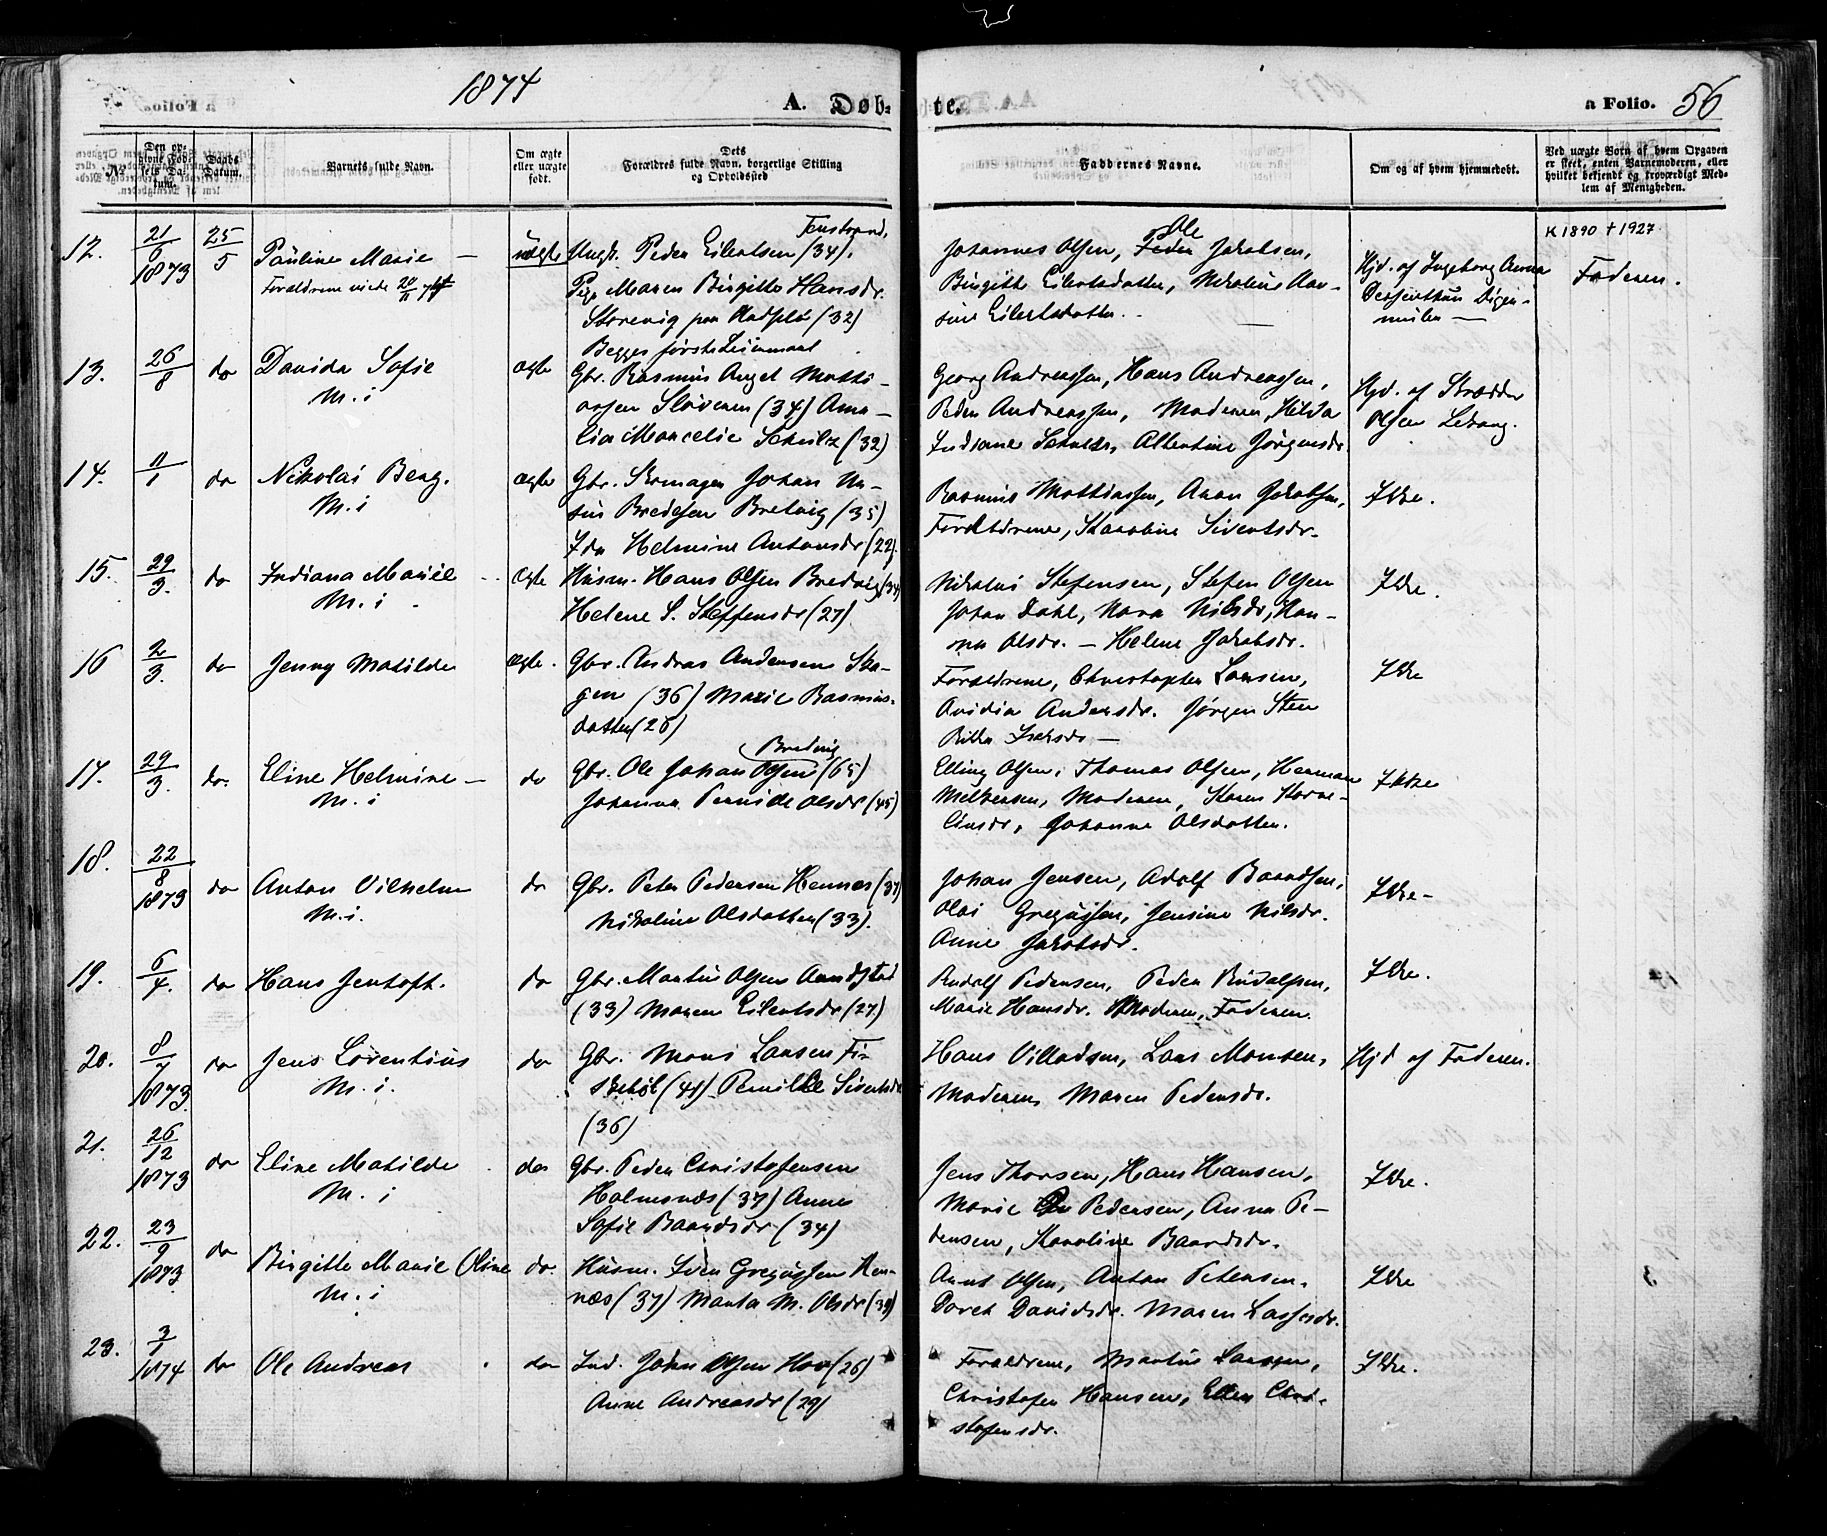 1874
A. Døb-
te.
a Folio. 56
No
Den opgivne Fødsels Datum.
Daabs Datum.
Barnets fulde Navn.
Om ægte eller uægte født.
Dets Forældres fulde Navn, borgerlige Stilling og Opholdssted
Faddernes Navne.
Om og af hvem hjemmedøbt.
Ved uægte Børn af hvem Opgaven er skeet, enten Barnemoderen, eller hvilket bekjendt og troværdigt Medlem af Menigheden.
12. 21/6 1873 25/5 Pauline Marie —
Forældrene viede
uægte
Ungk. Peder Eilertsen (34).
Pige Maren Birgitte Hansdr.
Storevig paa (32)
Begges første Leiermaal
Johannes Olsen, Ole Jakobsen,
Birgitte Eilertsdatter, Nikoline
Eilertsdatter.
Hjd. af Ingeborg Anna
K 1890 † 1927
Faderen.
13. 26/8 do Davida Sofie
M. i
ægte
Gbr. Rasmus Angel Matti-
assen Sløveren (34) Ama-
lia Marcelie Schulz (32)
Georg Andreassen, Hans Andreassen,
Peder Andreassen, Moderen, Hilda
Indiane Schultz, Albertine Jørgensdr.
Hjd. af Skrædder
Olsen Ledang.
14. 11/1 do Nikolai Berg.
M. i
ægte
Gbr. Skomager Johan
Bredesen Bretvig (35)
Ida Helmine Antonsdr (22).
Rasmus Mattiassen, Aron Jakobsen,
Forældrene, Karoline Sivertsdr.
Ikke.
15. 29/3. do Indiana Marie
M. i
ægte
Husm. Hans Olsen Bredvig (34)
Helene S. Steffensdr (27)
Nikolai Stefensen, Stefen Olsen
Johan Dahl, Nora Nilsdr, Han-
na Olsdr. — Helene Jakobsdr.
Ikke.
16 2/3. do Jenny Matilde
ægte.
Gbr. Andreas Andersen Ska-
gen (36) Marie Rasmus-
datter (26)
Forældrene, Christopher Larsen,
Ovidia Andersdr. Jørgen Steen
Rikka Iseksdr —
Ikke
17. 29/3. do. Eline Helmine —
M. i
do
Bredvig
Gbr. Ole Johan Olsen (65)
Johanna Pernille Olsdr (45)
Elling Olsen, Thomas Olsen, Herman
Meltersen, Moderen, Karen Korne-
liusdr, Johanne Olsdatter.
Ikke
18. 22/8 1873 do Anton Vilhelm
M. i.
do
Gbr. Peter Pedersen Hennes (37)
Nikoline Olsdatter (33).
Johan Jensen, Adolf Baardsen,
Olai Gregussen, Jensine Nilsdr.
Anne Jakobsdr.
Ikke —
19. 6/4. do Hans Jentoft.
do
Gbr. Martin Olsen
(33) Maren Eilertsdr (27)
Rudolf Pedersen, Peder Rudolfsen,
Marie Hansdr. Moderen, Faderen.
Ikke.
20. 8/7 1873 do Jens Lorentius
M. i.
do
Gbr. Mons Larsen Fi-
skebøl (41) Pernille Sivertsdr
(36)
Hans Villadsen, Lars Monsen,
Moderen, Maren Pedersdr.
Hjd af Faderen.
21. 26/12 1873 do Eline Matilde
M. i
do
Gbr. Peder Christofersen
Holmesnæs (37) Anne
Sofie Baardsdr (34)
Jens Thorsen, Hans Hansen,
Marie Pedersen, Anna Pe-
dersen, Karoline Baardsdr.
Ikke.
22. 23/9 1873 do Birgitte Marie Oline
M. i
do.
Husm. Iver Gregussen Hen-
næs (37) Marta M. Olsdr (39)
Arnt Olsen, Anton Petersen,
Doret Davidsdr. Maren Lassesdr.
Ikke
23. 3/1 1874 do Ole Andreas
do
Ind. Johan Olsen Hov (26)
Anne Andreasdr (29)
Forældrene, Martin Larsen,
Christofer Hansen, Ellen Chri-
stofersdr.
Ikke.